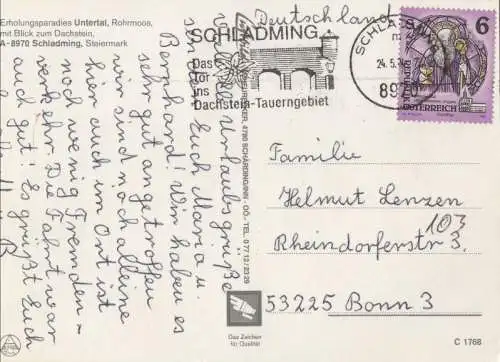 Erholungsparadies Untertal, Rohrmoos,
mit Blick zum Dachstein,
A-8970 Schladming, Steiermark
Deutschland
SCHLADMING
Das
Tor
ins
Dachstein-Tauerngebiet
8970
6
REPUBLIK
ÖSTERREICH
Viele Urlaubsgrüße
Euch Maria u.
Bernhard! Wir haben es
sehr gut angetroffen
wir sind noch alleine
hier auch im Ort ist
noch wenig Fremden-
verkehr. Die Fahrt war
auch gut! Es grüßt Euch
4780 SCHÄRDING/INN OÖ. TEL. 0 77 12 / 23 29
Familie
Helmut Lenzen
Rheindorferstr. 103
53225 Bonn 3
Das Zeichen
für Qualität
C 1768